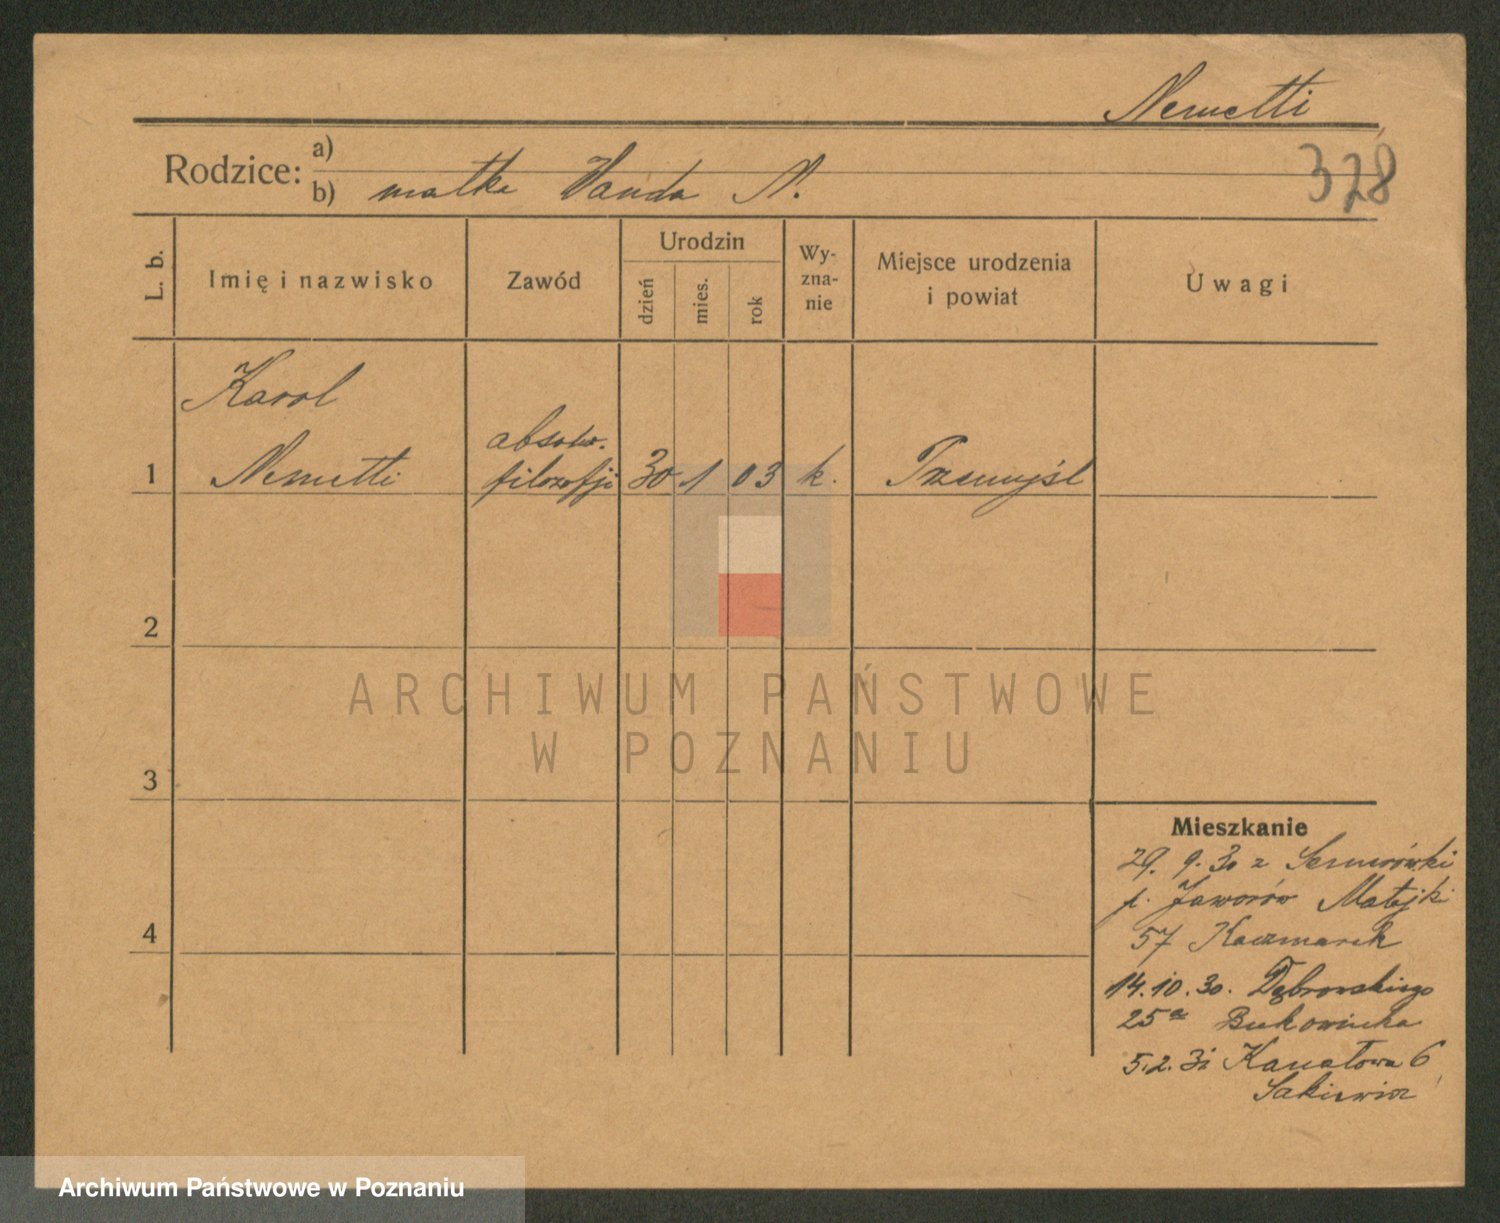 Nemetti
378
Rodzice: a)
b) matka Wanda N.
L. b.
Imię i nazwisko
Zawód
Urodzin
dzień
mies.
rok
Wy-
zna-
nie
Miejsce urodzenia
i powiat
Uwagi
Karol
absolw.
1 Nemetti filozofji 30 1 03 k. Przemyśl
2
3
4
ARCHIWUM PAŃSTWOWE
W POZNANIU
Mieszkanie
29. 9. 30 z
p. Jaworów Matejki
57 Kaczmarek
14.10.30. Dąbrowskiego
25a
5.2.31 Kanałowa 6
Archiwum Państwowe w Poznaniu